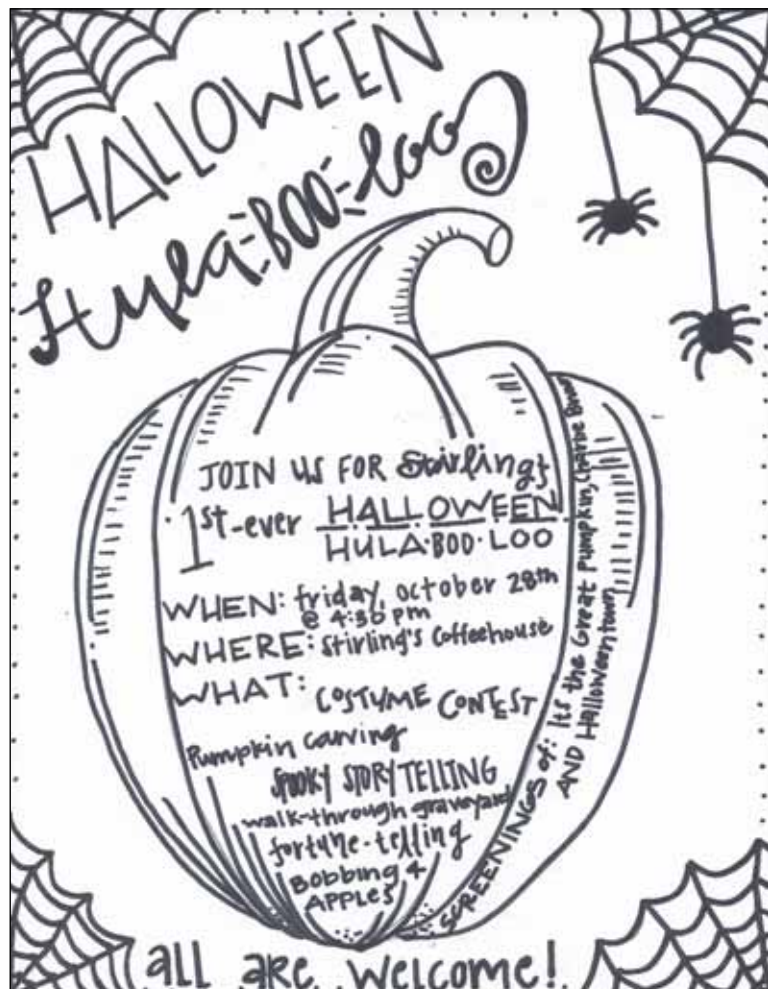 HALLOWEEN
Hula·BOO·loo
JOIN US FOR Stirling's
1st-ever HALLOWEEN
HULA·BOO·LOO
WHEN: friday, october 28th
@ 4:30 pm
WHERE: Stirling's Coffeehouse
WHAT: COSTUME CONTEST
Pumpkin carving
SPOOKY STORYTELLING
walk-through graveyard
fortune-telling
Bobbing 4
APPLES
SCREENINGS of: Its the Great Pumpkin, Charlie Brown
AND Halloweentown
all are welcome!